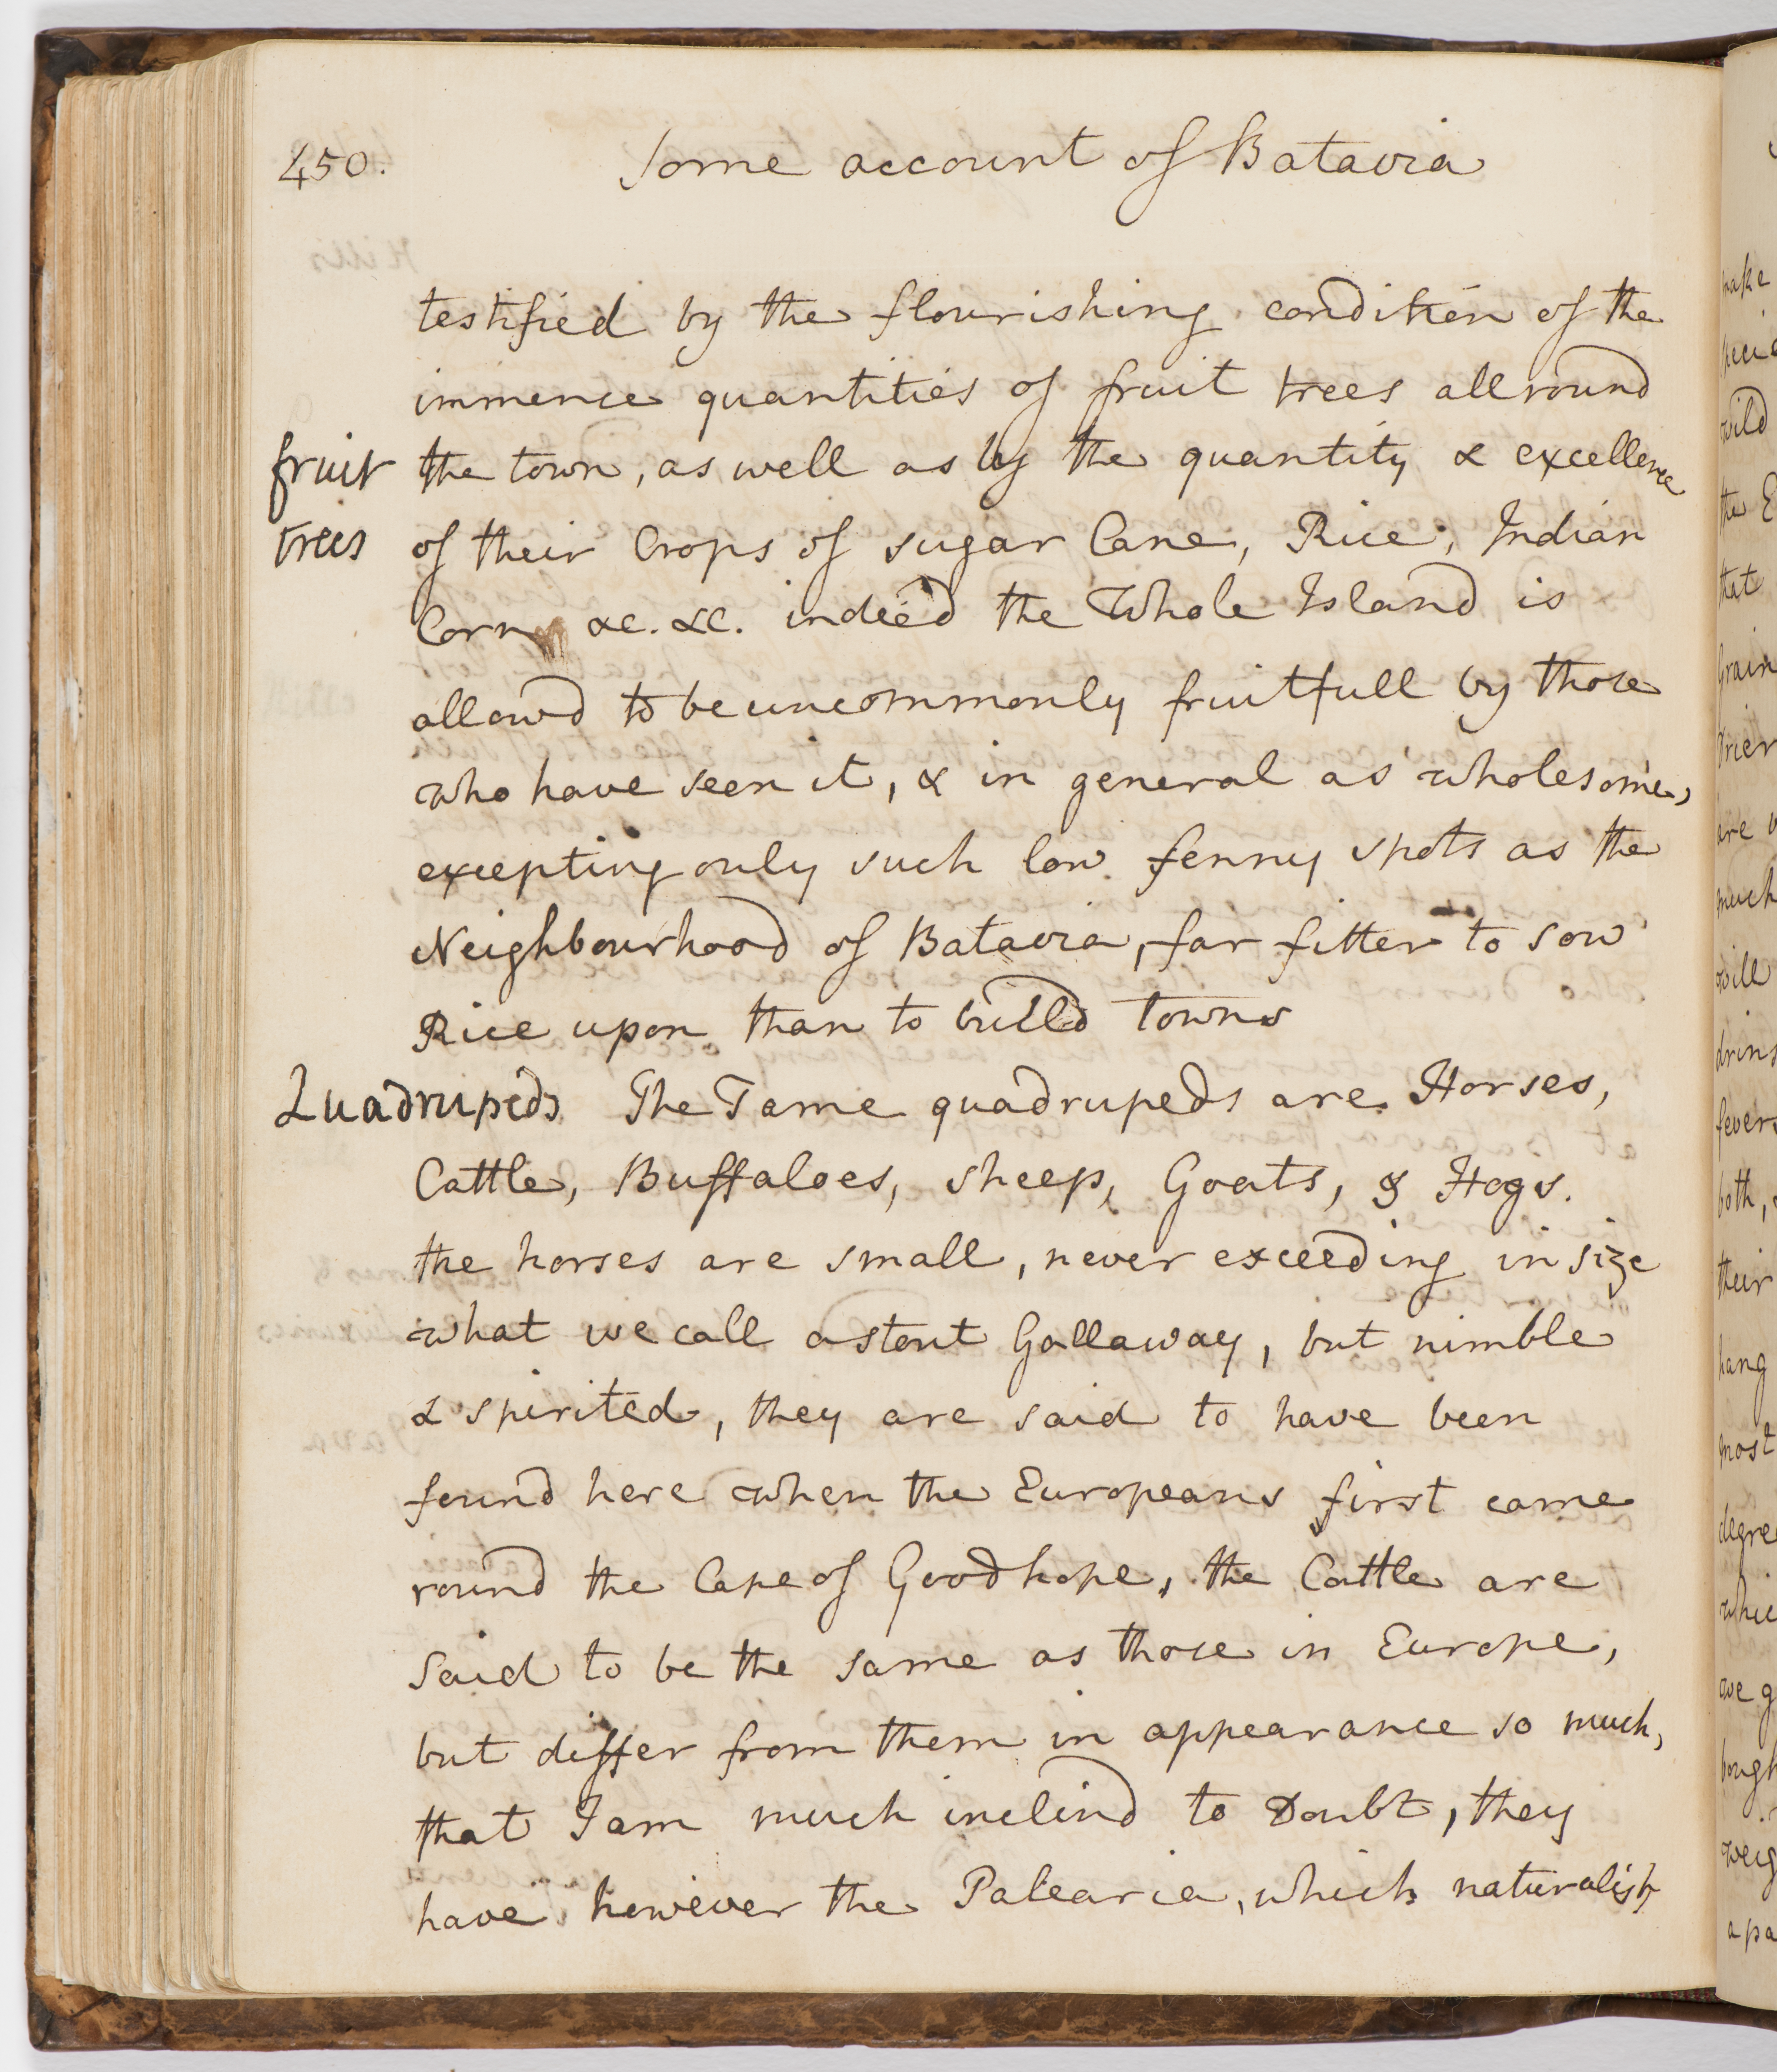 450. Some account of Batavia
testified by the flourishing condition of the
immence quantities of fruit trees all round
fruit the town, as well as by the quantity & excellence
trees of their Crops of sugar Cane, Rice, Indian
Corn &c. &c. indeed the Whole Island is
allowd to be uncommonly fruitfull by those
who have seen it, & in general as wholesome,
excepting only such low fenny spots as the
Neighbourhood of Batavia, far fitter to sow
Rice upon than to build towns
Quadrupeds The Tame quadrupeds are Horses,
Cattle, Buffaloes, sheep, Goats, & Hogs.
the horses are small, never exceeding in size
what we call a stout Gallaway, but nimble
& spirited, they are said to have been
found here when the Europeans first came
round the Cape of Good hope, the Cattle are
said to be the same as those in Europe,
but differ from them in appearance so much,
that I am much inclind to Doubt, they
have however the Palearia, which naturalists
make
wild
the E
that
are
much
will
fevers
both,
their
hang
most
we g
a pa